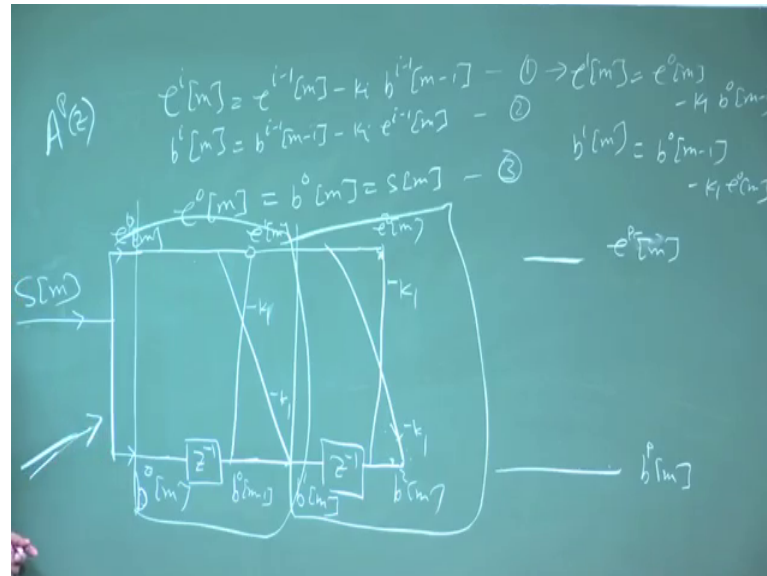 A^P(z)
e^i[m] = e^{i-1}[m] - k_i b^{i-1}[m-1] - ① → e^1[m] = e^0[m]
- k_1 b^0[m-
b^i[m] = b^{i-1}[m-1] - k_i e^{i-1}[m] - ②
b^1[m] = b^0[m-1]
- k_1 e^0[m]
e^0[m] = b^0[m] = S[m] - ③
e^0[m] e^1[m]
e^P[m]
S[m]
-k_1 -k_1
-k_1 -k_1
z^{-1} z^{-1}
b^0[m] b^0[m-1] b^1[m]
b^P[m]